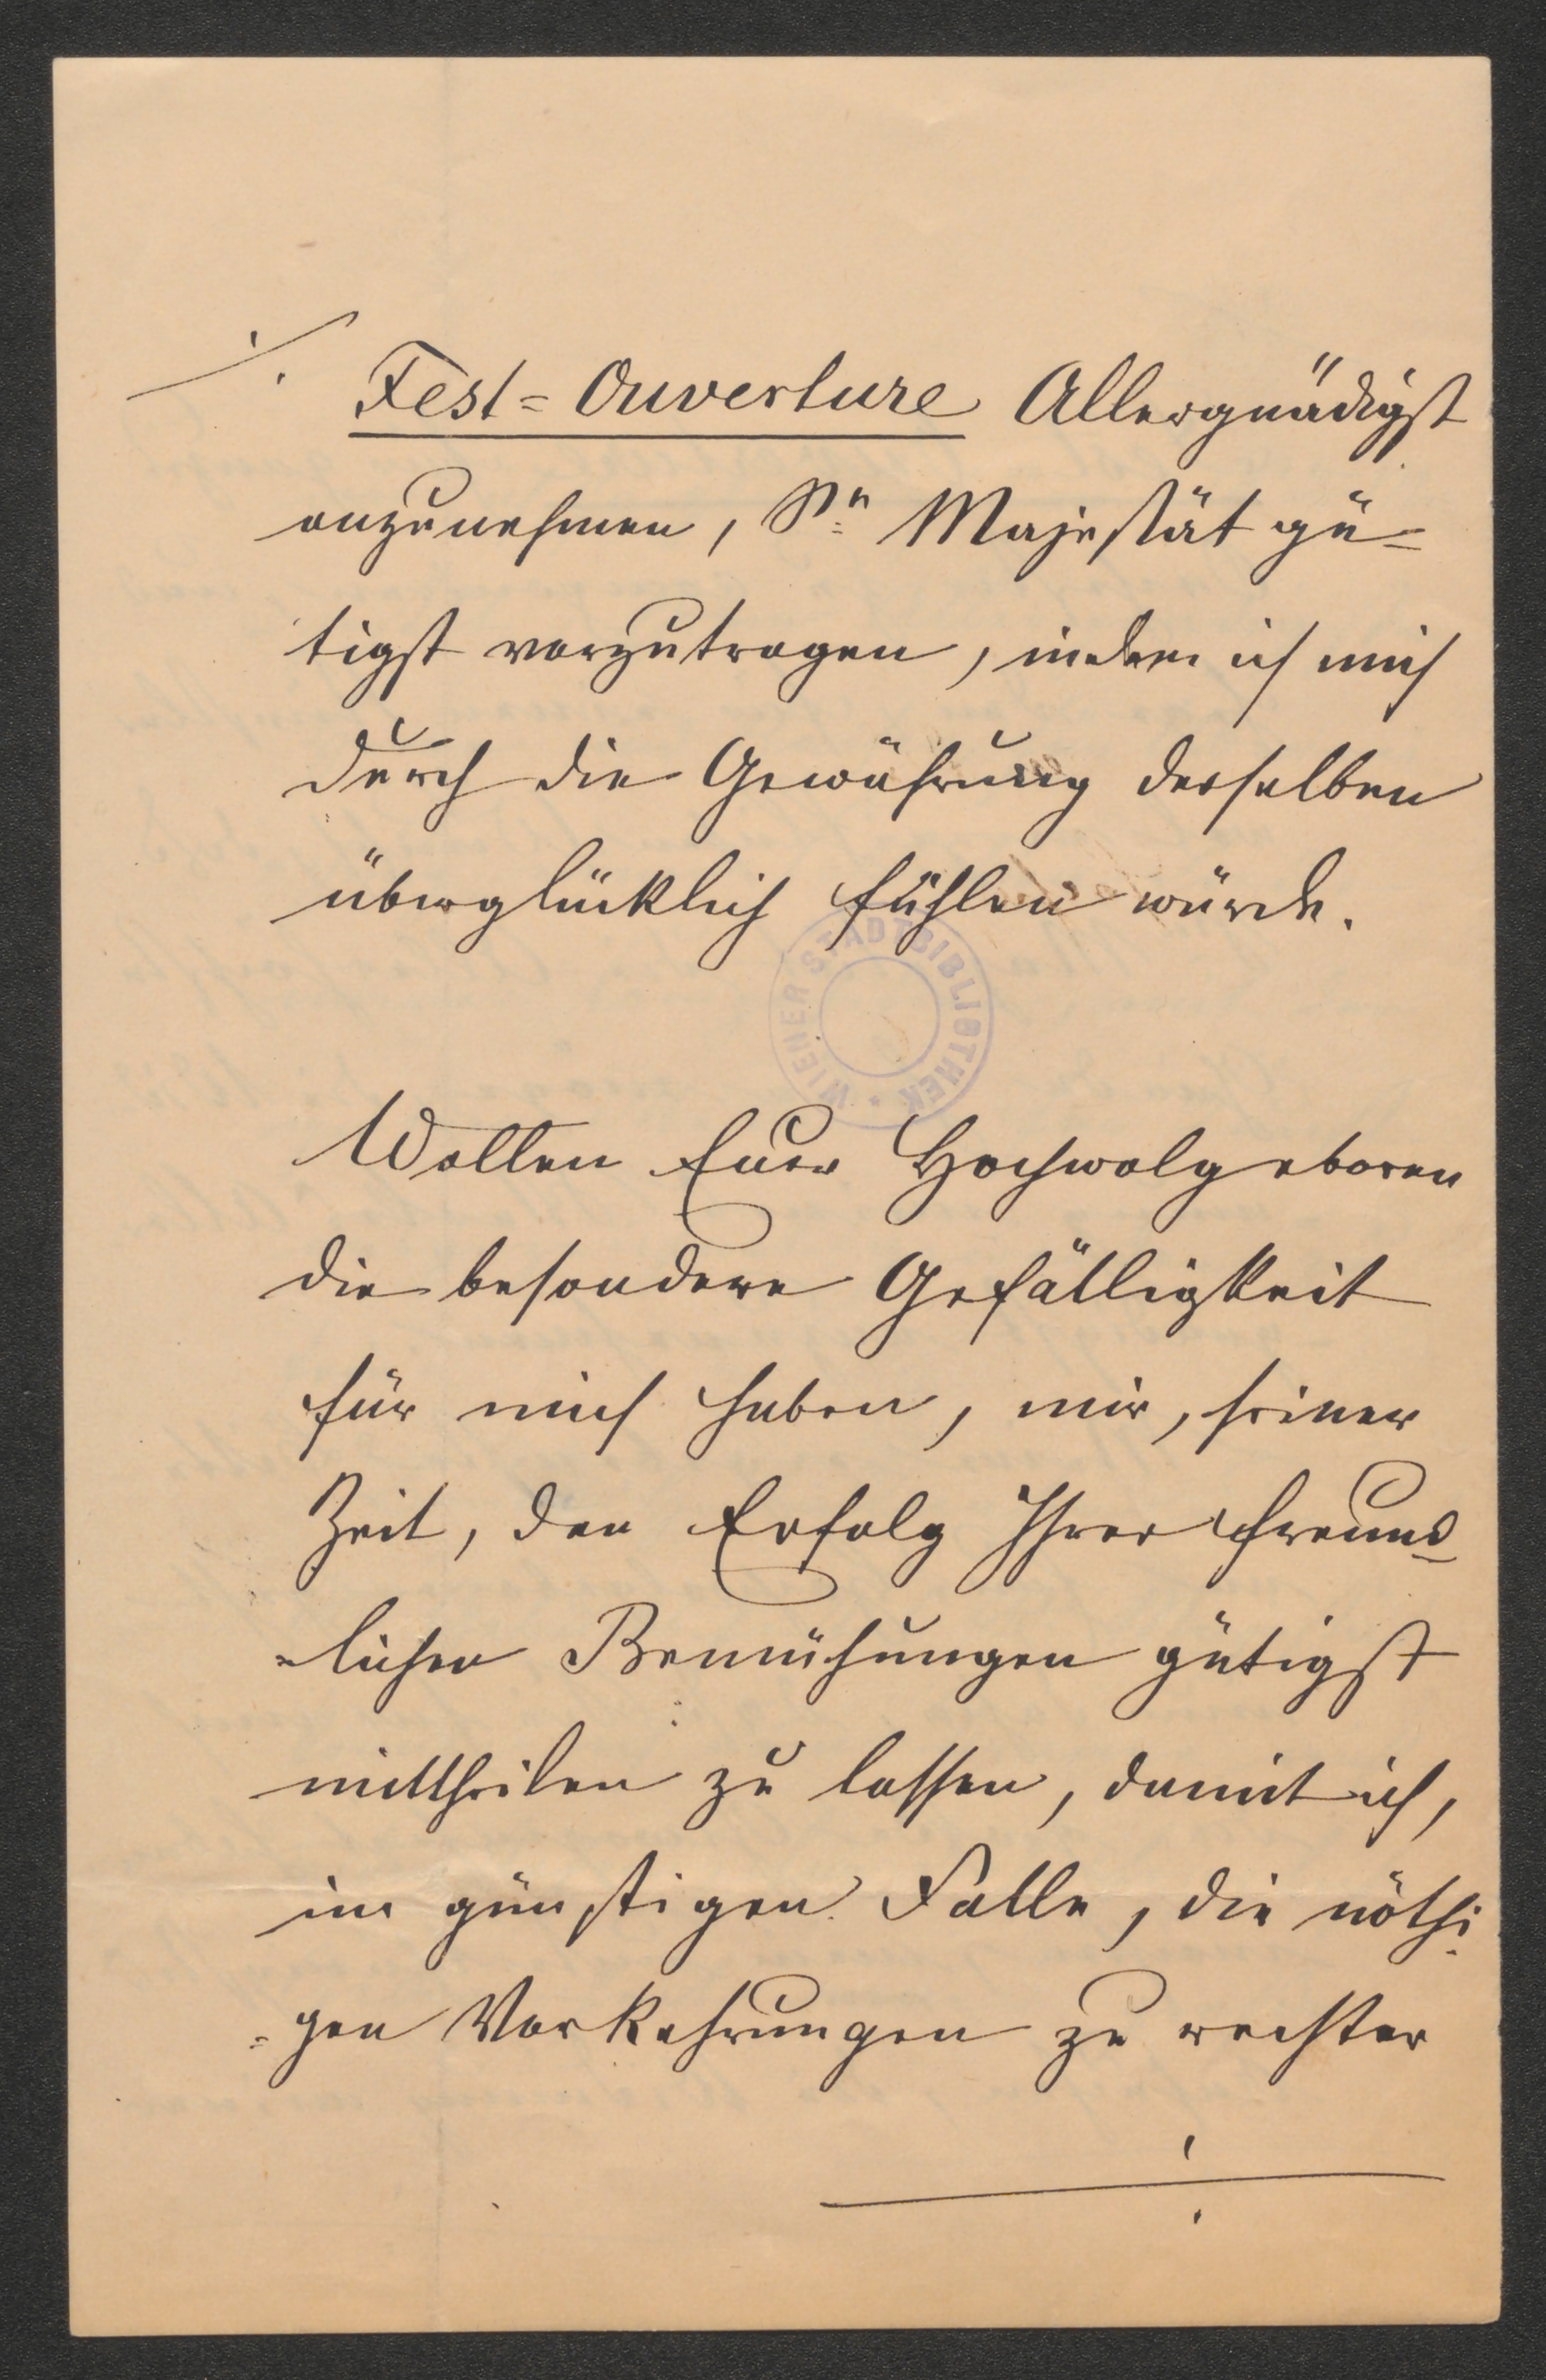 ⁒ Fest=Ouverture Allergnädigst
anzunehmen, Sr Majestät gü=
tigst vorzutragen, indem ich mich
durch die Gewährung derselben
überglücklich fühlen würde.
WIENER STADTBIBLIOTHEK *
Wollen Euer Hochwolgeboren
die besondere Gefälligkeit
für mich haben, mir, seiner
Zeit, den Erfolg Ihrer freund=
=lichen Bemühungen gütigst
mittheilen zu lassen, damit ich,
im günstigen Falle, die nöthi=
=gen Vorkehrungen zu rechter